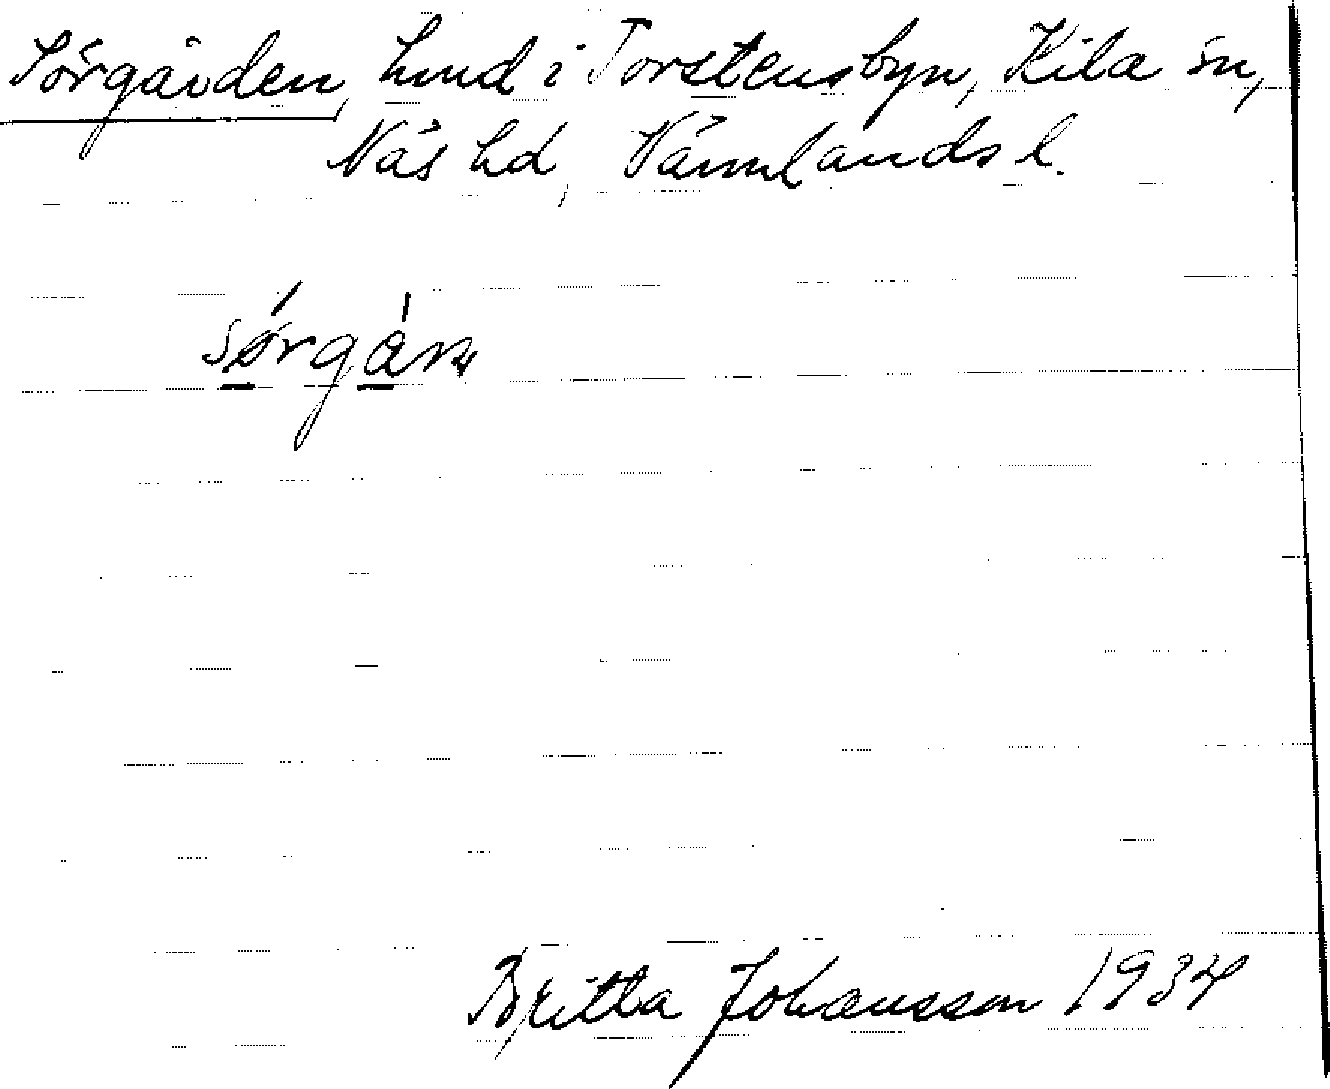 Sörgården, hmd i Torstensbyn, Kila sn,
Näs hd, Värmlands l.
Britta Johansson 1934